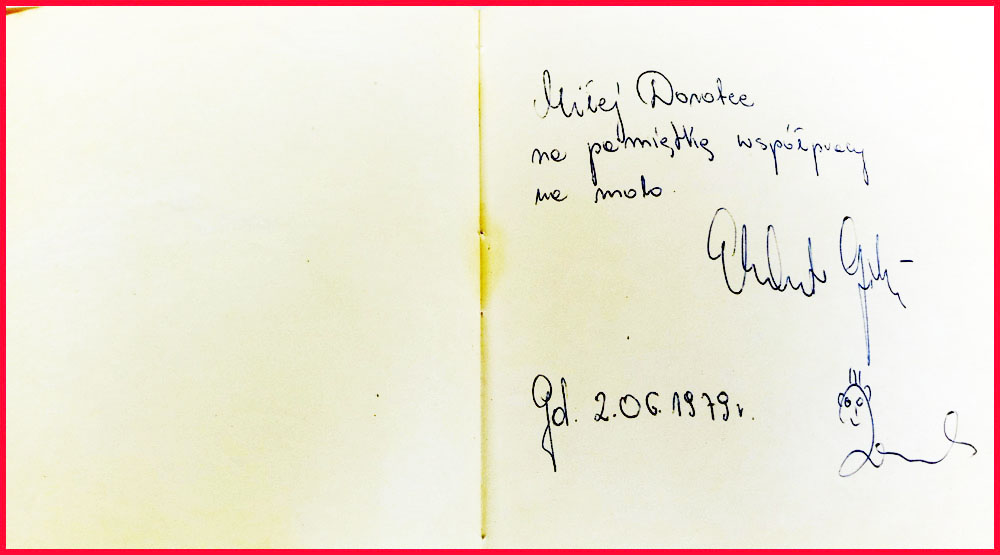 Miłej Dorotce
na pamiątkę współpracy
na molo.
Gd. 2.06.1979r.